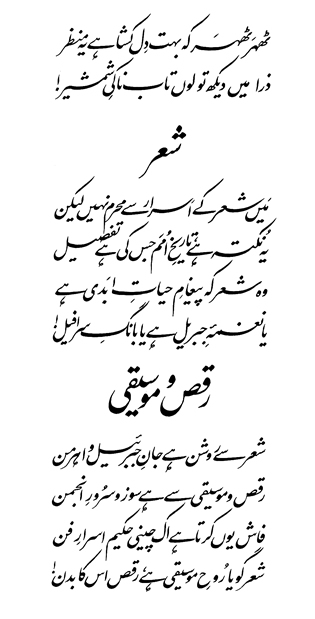 ٹھہر ٹھہر کہ بہت دل کشا ہے یہ منظر
ذرا میں دیکھ تو لوں تاب ناکیِ شمشیر!
شعر
مَیں شعر کے اَسرار سے محرم نہیں لیکن
یہ نکتہ ہے، تاریخِ اُمَم جس کی ہے تفصیل
وہ شعر کہ پیغامِ حیاتِ ابَدی ہے
یا نغمۂ جبریل ہے یا بانگِ سرافیل!
رقص و موسیقی
شعر سے روشن ہے جانِ جبرئیل و اہرمن
رقص و موسیقی سے ہے سوز و سُرورِ انجمن
فاش یوں کرتا ہے اک چینی حکیم اسرارِ فن
شعر گویا رُوحِ موسیقی ہے، رقص اس کا بدن!